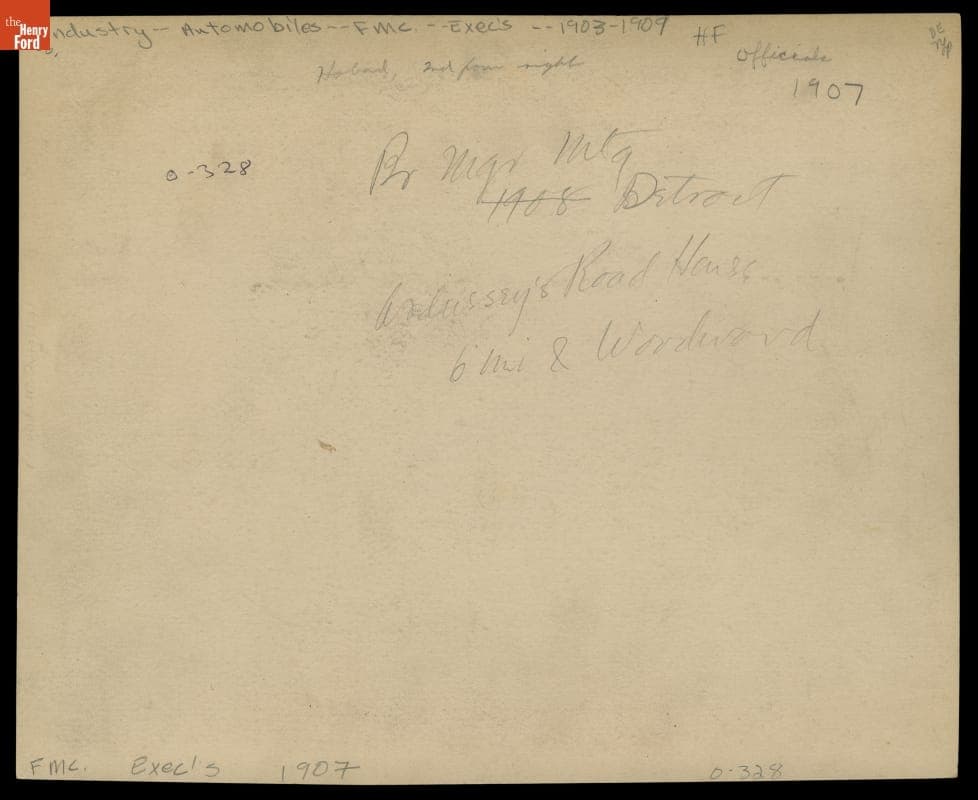 the
Henry
Ford
Industry -- Automobiles -- FMC. -- Exec's -- 1903-1909
HF
Officials
2nd from right
1907
O-328
Br Mgr Mtg
1908 Detroit
Road House
6 mi & Woodward
FMC. Exec's 1907
O-328